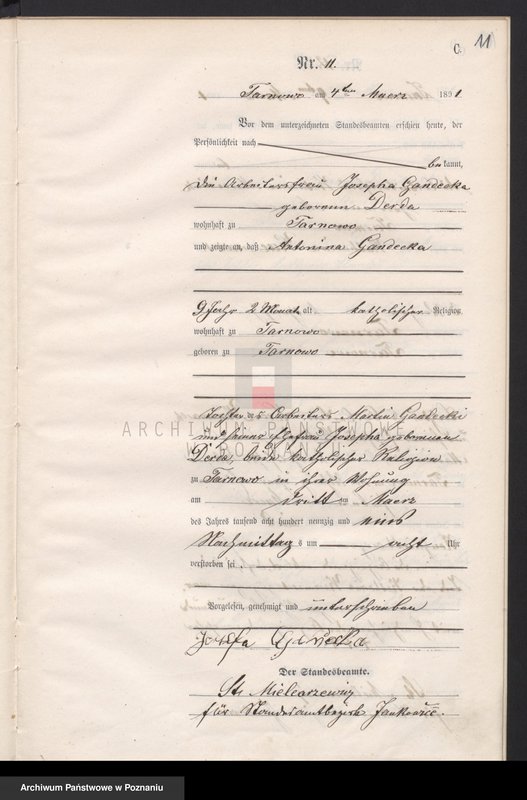 C. 11
Nr. 11.
Tarnowo am 4ten Maerz 1891.
Vor dem unterzeichneten Standesbeamten erschien heute, der
Persönlichkeit nach
bekannt,
die Arbeitersfrau Josepha Gandecka
geborene Derda
wohnhaft zu Tarnowo
und zeigte an, daß Antonina Gandecka
9 Jahr 2 Monate alt katholischer Religion,
wohnhaft zu Tarnowo
geboren zu Tarnowo
Tochter des Arbeiters Martin Gandecki
und seiner Ehefrau Josepha geborenen
Derda, beide katholischer Religion
ARCHIWUM PAŃSTWOWE
W POZNANIU
zu Tarnowo in ihrer Wohnung
am dritten Maerz
des Jahres tausend acht hundert neunzig und eins
Nachmittags um acht Uhr
verstorben sei.
Vorgelesen, genehmigt und unterschrieben
Josefa Gandecka
Der Standesbeamte.
für Standesamtbezirk
Archiwum Państwowe w Poznaniu